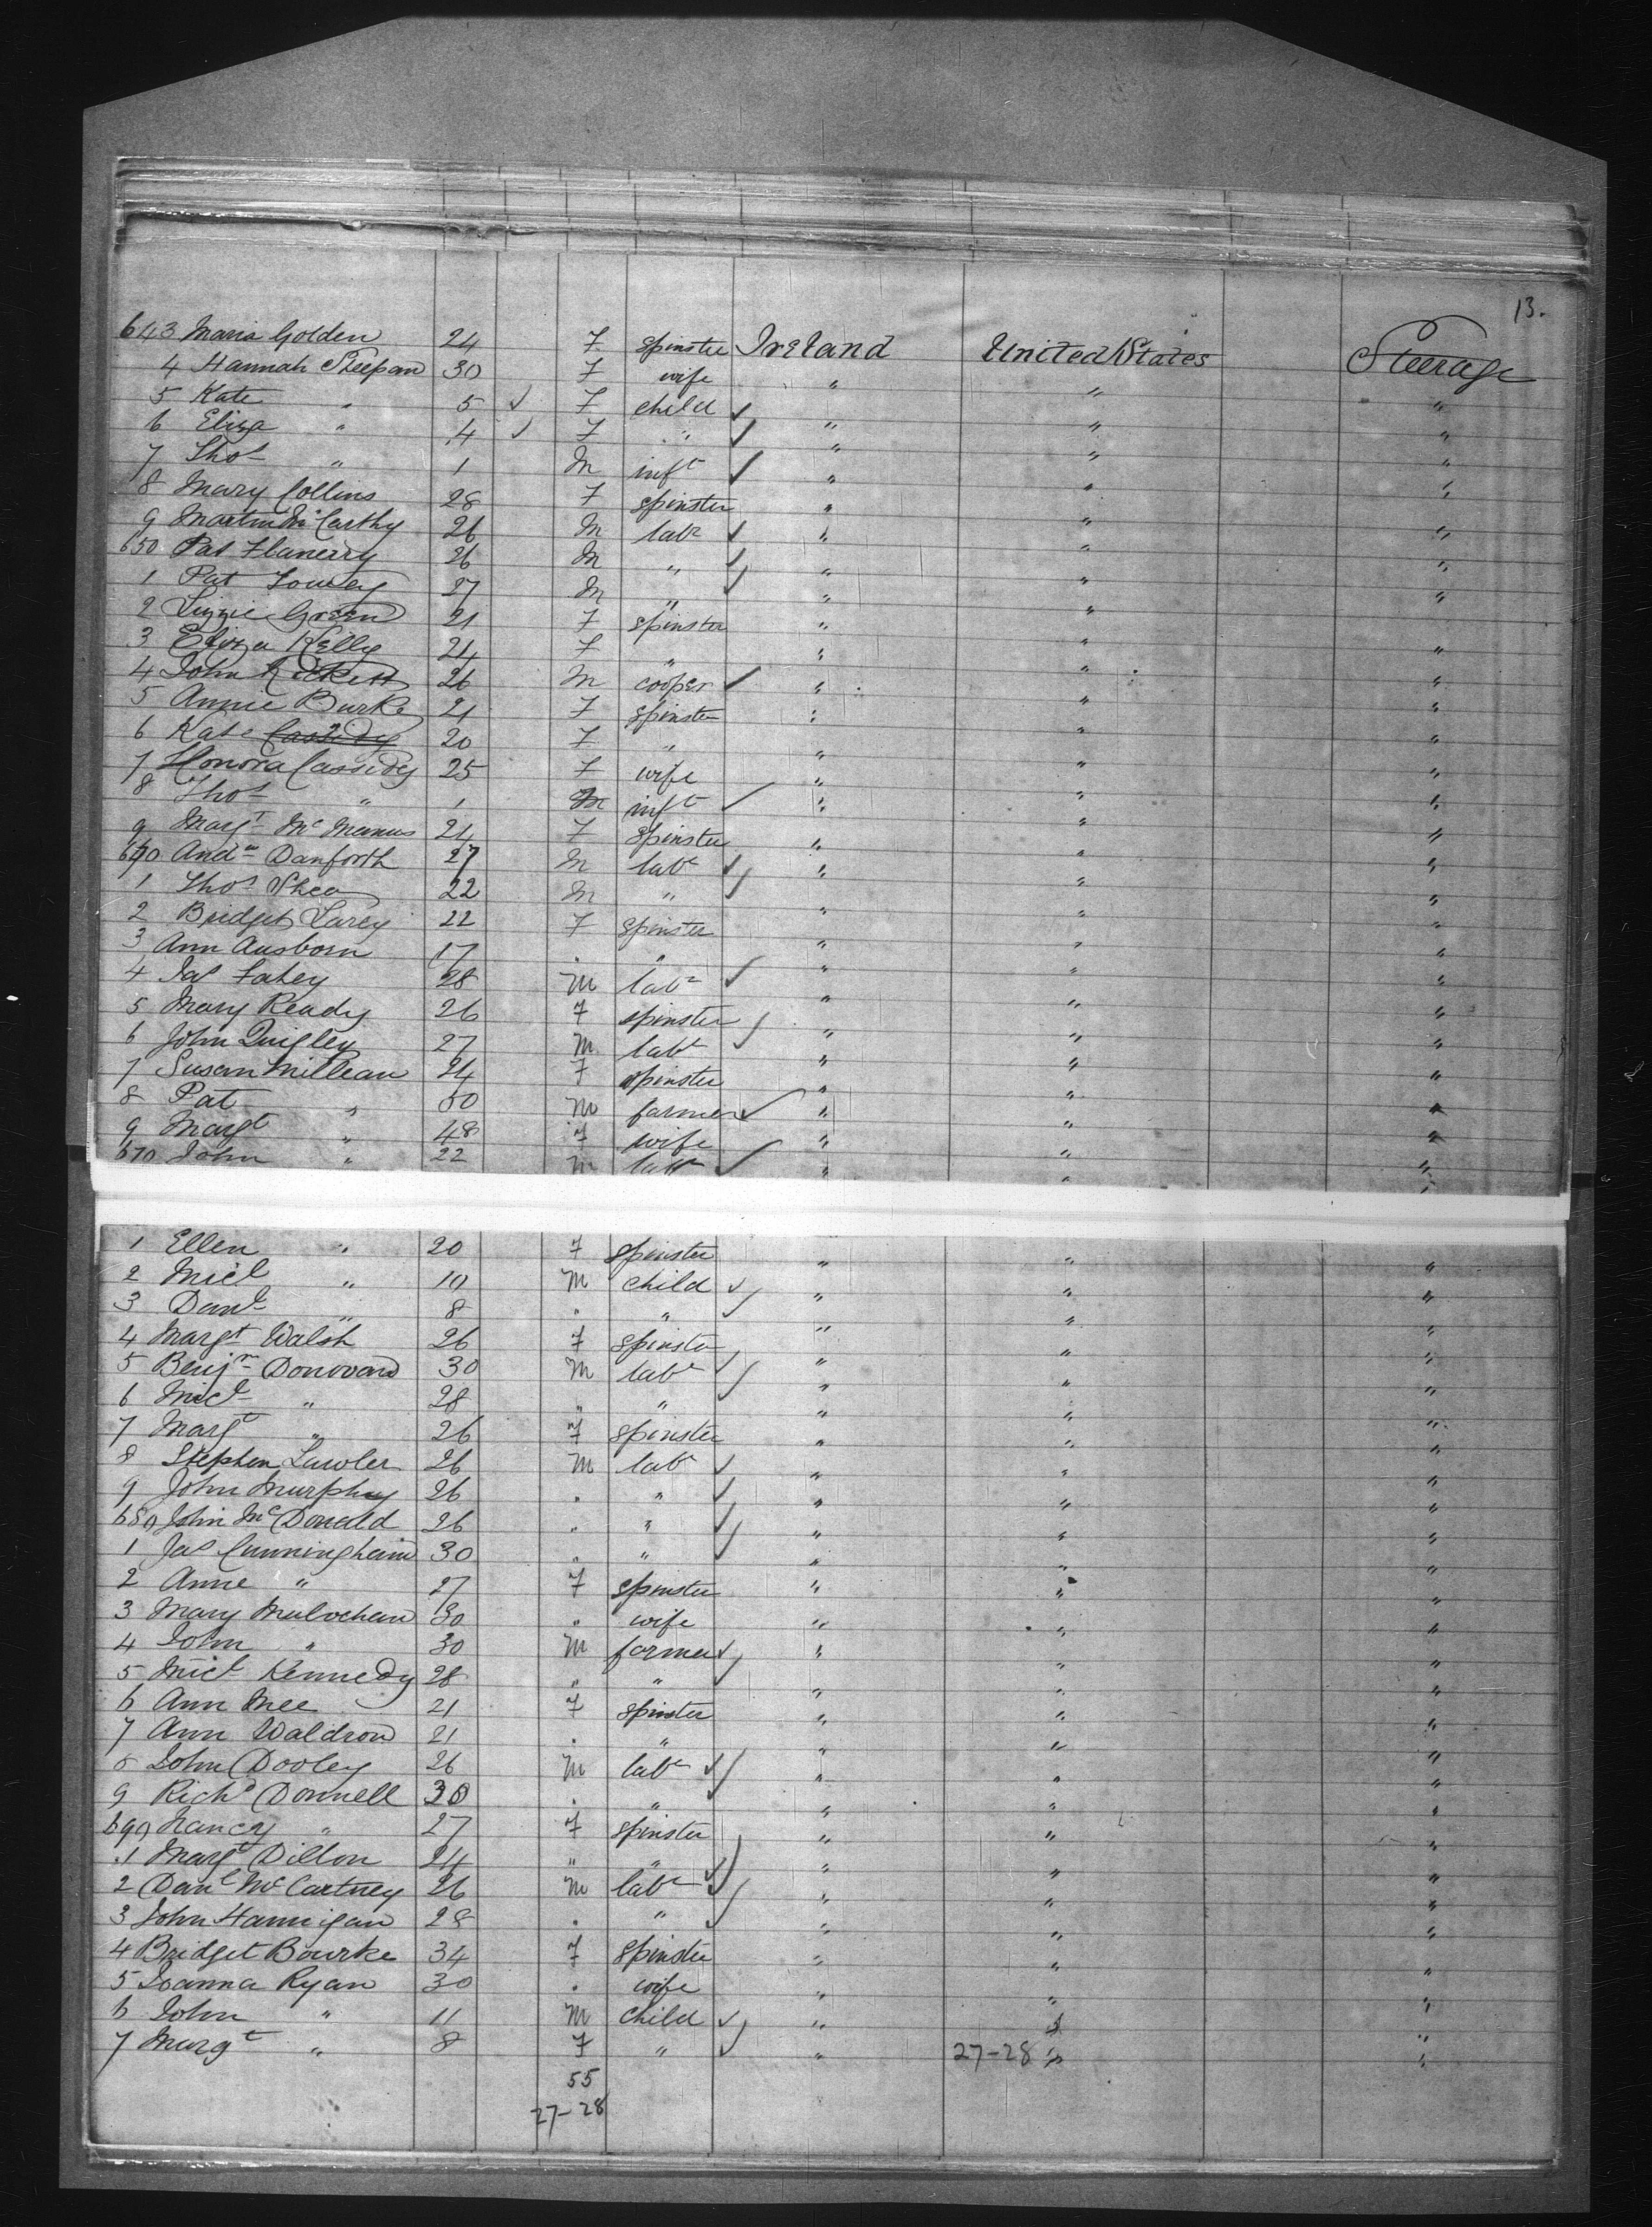 13.
643 Maria Golden 24 F spinster Ireland United States Steerage
4 Hannah 30 F wife " " "
5 Kate " 5 ✓ F child ✓ " " "
6 Eliza " 4 ✓ F " ✓ " " "
7 Thos " 1 M inft ✓ " " "
8 Mary Collins 28 F spinster " " "
9 Martin McCarthy 26 M labr ✓ " " "
650 Pat Flanerry 26 M " ✓ " " "
1 Pat 27 M " ✓ " " "
2 Lizzie Green 21 F spinster " " "
3 Eliza Kelly 24 F " " " "
4 John Rickett 26 M cooper ✓ " " "
5 Annie Burke 21 F spinster " " "
6 Kate Cassidy 20 F " " " "
7 Honora Cassidy 25 F wife " " "
8 Thos " 1 M inft ✓ " " "
9 Margt McManus 24 F spinster " " "
660 Andw Danforth 27 M labr ✓ " " "
1 Thos Shea 22 M " ✓ " " "
2 Bridget Larey 22 F spinster " " "
3 Ann Ausborn 17 " " " " "
4 Jas Fahey 28 M labr ✓ " " "
5 Mary Ready 26 F spinster " " "
6 John Quigley 27 M labr ✓ " " "
7 Susan Millean 24 F spinster " " "
8 Pat " 50 M farmer ✓ " " "
9 Margt " 48 F wife " " "
670 John " 22 M labr ✓ " " "
1 Ellen " 20 F spinster " " "
2 Micl " 10 M child ✓ " " "
3 Danl " 8 " " ✓ " " "
4 Margt Walsh 26 F spinster " " "
5 Benjn Donovan 30 M labr ✓ " " "
6 Micl " 28 " " ✓ " " "
7 Margt " 26 F spinster " " "
8 Stephen Lawler 26 M labr ✓ " " "
9 John Murphy 26 " " ✓ " " "
680 John McDonald 26 " " ✓ " " "
1 Jas Cunningham 30 " " ✓ " " "
2 Anne " 27 F spinster " " "
3 Mary Mulvehan 30 " wife " " "
4 John " 30 M farmer ✓ " " "
5 Micl Kennedy 28 " " ✓ " " "
6 Ann Mee 21 F spinster " " "
7 Ann Waldron 21 " " " " "
8 John Dooley 26 M labr ✓ " " "
9 Richd Donnell 30 " " ✓ " " "
690 Nancy " 27 F spinster " " "
1 Margt Dillon 24 " " " " "
2 Danl McCartney 26 M labr ✓ " " "
3 John Hannigan 28 " " ✓ " " "
4 Bridget Bourke 34 F spinster " " "
5 Joanna Ryan 30 " wife " " "
6 John " 11 M child ✓ " " "
7 Margt " 8 F " ✓ " 27-28 " "
55
27-28